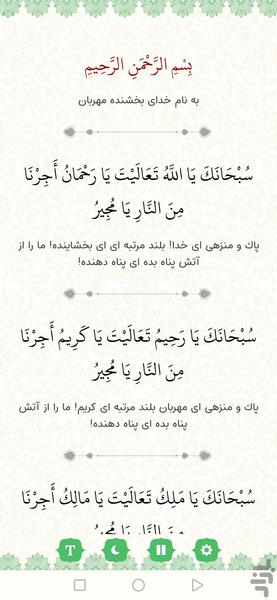 بِسْمِ الرَّحْمَنِ الرَّحِيمِ
به نام خدای بخشنده مهربان
سُبْحَانَكَ يَا اللَّهُ تَعَالَيْتَ يَا رَحْمَانُ أَجِرْنَا
مِنَ النَّارِ يَا مُجِيرُ
پاك و منزهى اى خدا! بلند مرتبه اى اى بخشاينده! ما را از
آتش پناه بده اى پناه دهنده!
سُبْحَانَكَ يَا رَحِيمُ تَعَالَيْتَ يَا كَرِيمُ أَجِرْنَا
مِنَ النَّارِ يَا مُجِيرُ
پاك و منزهى اى مهربان بلند مرتبه اى كريم! ما را از آتش
پناه بده اى پناه دهنده!
سُبْحَانَكَ يَا مَلِكُ تَعَالَيْتَ يَا مَالِكُ أَجِرْنَا
مِنَ النَّارِ يَا مُجِيرُ
T
بازار